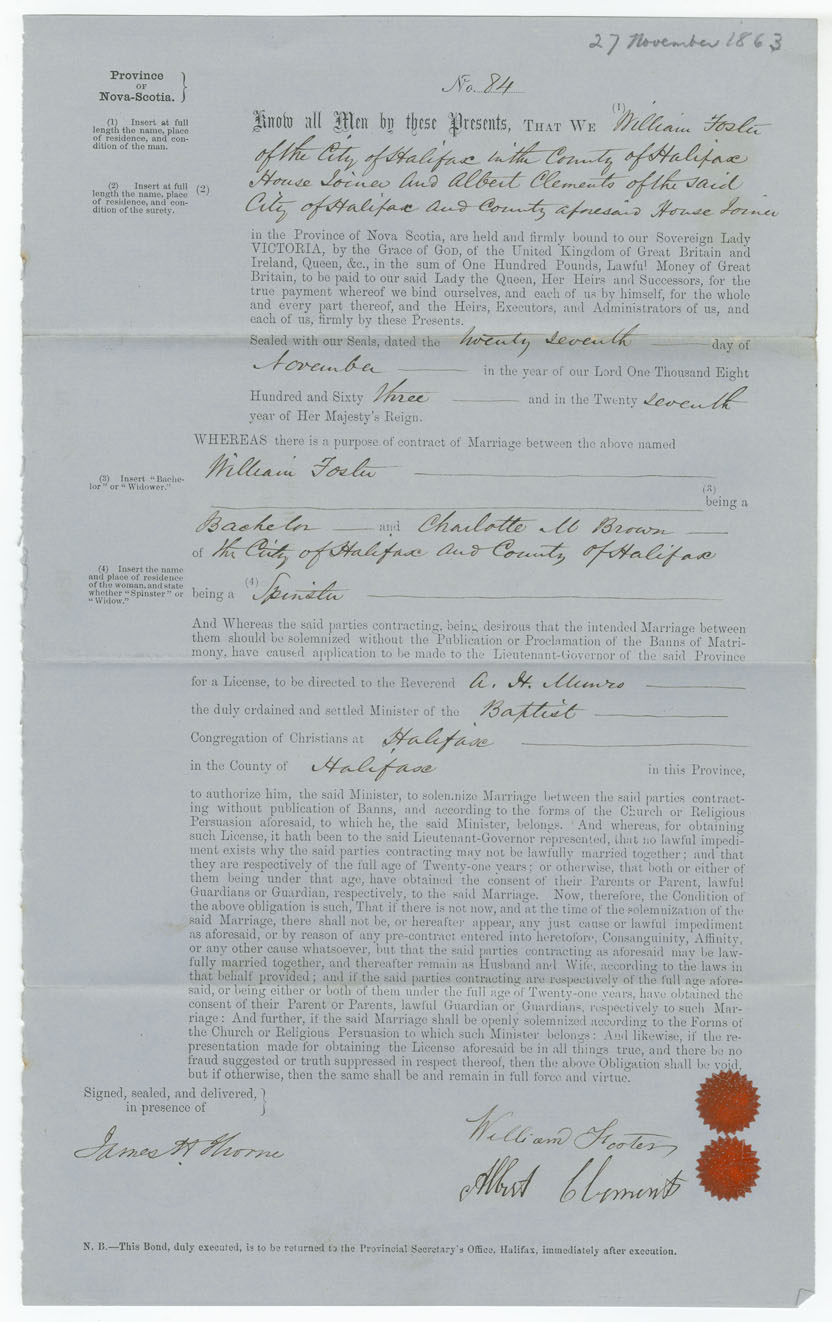 27 November 1863
Province
OF
Nova-Scotia.
No. 84
(1) Insert at full
length the name, place
of residence, and con-
dition of the man.
(2) Insert at full
length the name, place
of residence, and con-
dition of the surety.
Know all Men by these Presents, THAT WE (1) William Foster
of the City of Halifax in the County of Halifax
(2) House Joiner and Albert Clements of the said
City of Halifax and County aforesaid House Joiner
in the Province of Nova Scotia, are held and firmly bound to our Sovereign Lady
VICTORIA, by the Grace of GOD, of the United Kingdom of Great Britain and
Ireland, Queen, &c., in the sum of One Hundred Pounds, Lawful Money of Great
Britain, to be paid to our said Lady the Queen, Her Heirs and Successors, for the
true payment whereof we bind ourselves, and each of us by himself, for the whole
and every part thereof, and the Heirs, Executors, and Administrators of us, and
each of us, firmly by these Presents.
Sealed with our Seals, dated the twenty seventh day of
November in the year of our Lord One Thousand Eight
Hundred and Sixty three and in the Twenty seventh
year of Her Majesty's Reign.
WHEREAS there is a purpose of contract of Marriage between the above named
William Foster
(3) Insert "Bache-
lor" or "Widower."
(3)
being a
Bachelor and Charlotte M Brown
of the City of Halifax and County of Halifax
(4) Insert the name
and place of residence
of the woman, and state
whether "Spinster" or
"Widow."
being a (4) Spinster
And Whereas the said parties contracting, being desirous that the intended Marriage between
them should be solemnized without the Publication or Proclamation of the Banns of Matri-
mony, have caused application to be made to the Lieutenant-Governor of the said Province
for a License, to be directed to the Reverend A. H. Munro
the duly ordained and settled Minister of the Baptist
Congregation of Christians at Halifax
in the County of Halifax in this Province,
to authorize him, the said Minister, to solemnize Marriage between the said parties contract-
ing without publication of Banns, and according to the forms of the Church or Religious
Persuasion aforesaid, to which he, the said Minister, belongs. And whereas, for obtaining
such License, it hath been to the said Lieutenant-Governor represented, that no lawful impedi-
ment exists why the said parties contracting may not be lawfully married together; and that
they are respectively of the full age of Twenty-one years; or otherwise, that both or either of
them being under that age, have obtained the consent of their Parents or Parent, lawful
Guardians or Guardian, respectively, to the said Marriage. Now, therefore, the Condition of
the above obligation is such, That if there is not now, and at the time of the solemnization of the
said Marriage, there shall not be, or hereafter appear, any just cause or lawful impediment
as aforesaid, or by reason of any pre-contract entered into heretofore, Consanguinity, Affinity,
or any other cause whatsoever, but that the said parties contracting as aforesaid may be law-
fully married together, and thereafter remain as Husband and Wife, according to the laws in
that behalf provided; and if the said parties contracting are respectively of the full age afore-
said, or being either or both of them under the full age of Twenty-one years, have obtained the
consent of their Parent or Parents, lawful Guardian or Guardians, respectively to such Mar-
riage: And further, if the said Marriage shall be openly solemnized according to the Forms of
the Church or Religious Persuasion to which such Minister belongs: And likewise, if the re-
presentation made for obtaining the License aforesaid be in all things true, and there be no
fraud suggested or truth suppressed in respect thereof, then the above Obligation shall be void,
but if otherwise, then the same shall be and remain in full force and virtue.
Signed, sealed, and delivered,
in presence of
James H Thorne
William Foster
Albert Clements
N. B.—This Bond, duly executed, is to be returned to the Provincial Secretary's Office, Halifax, immediately after execution.